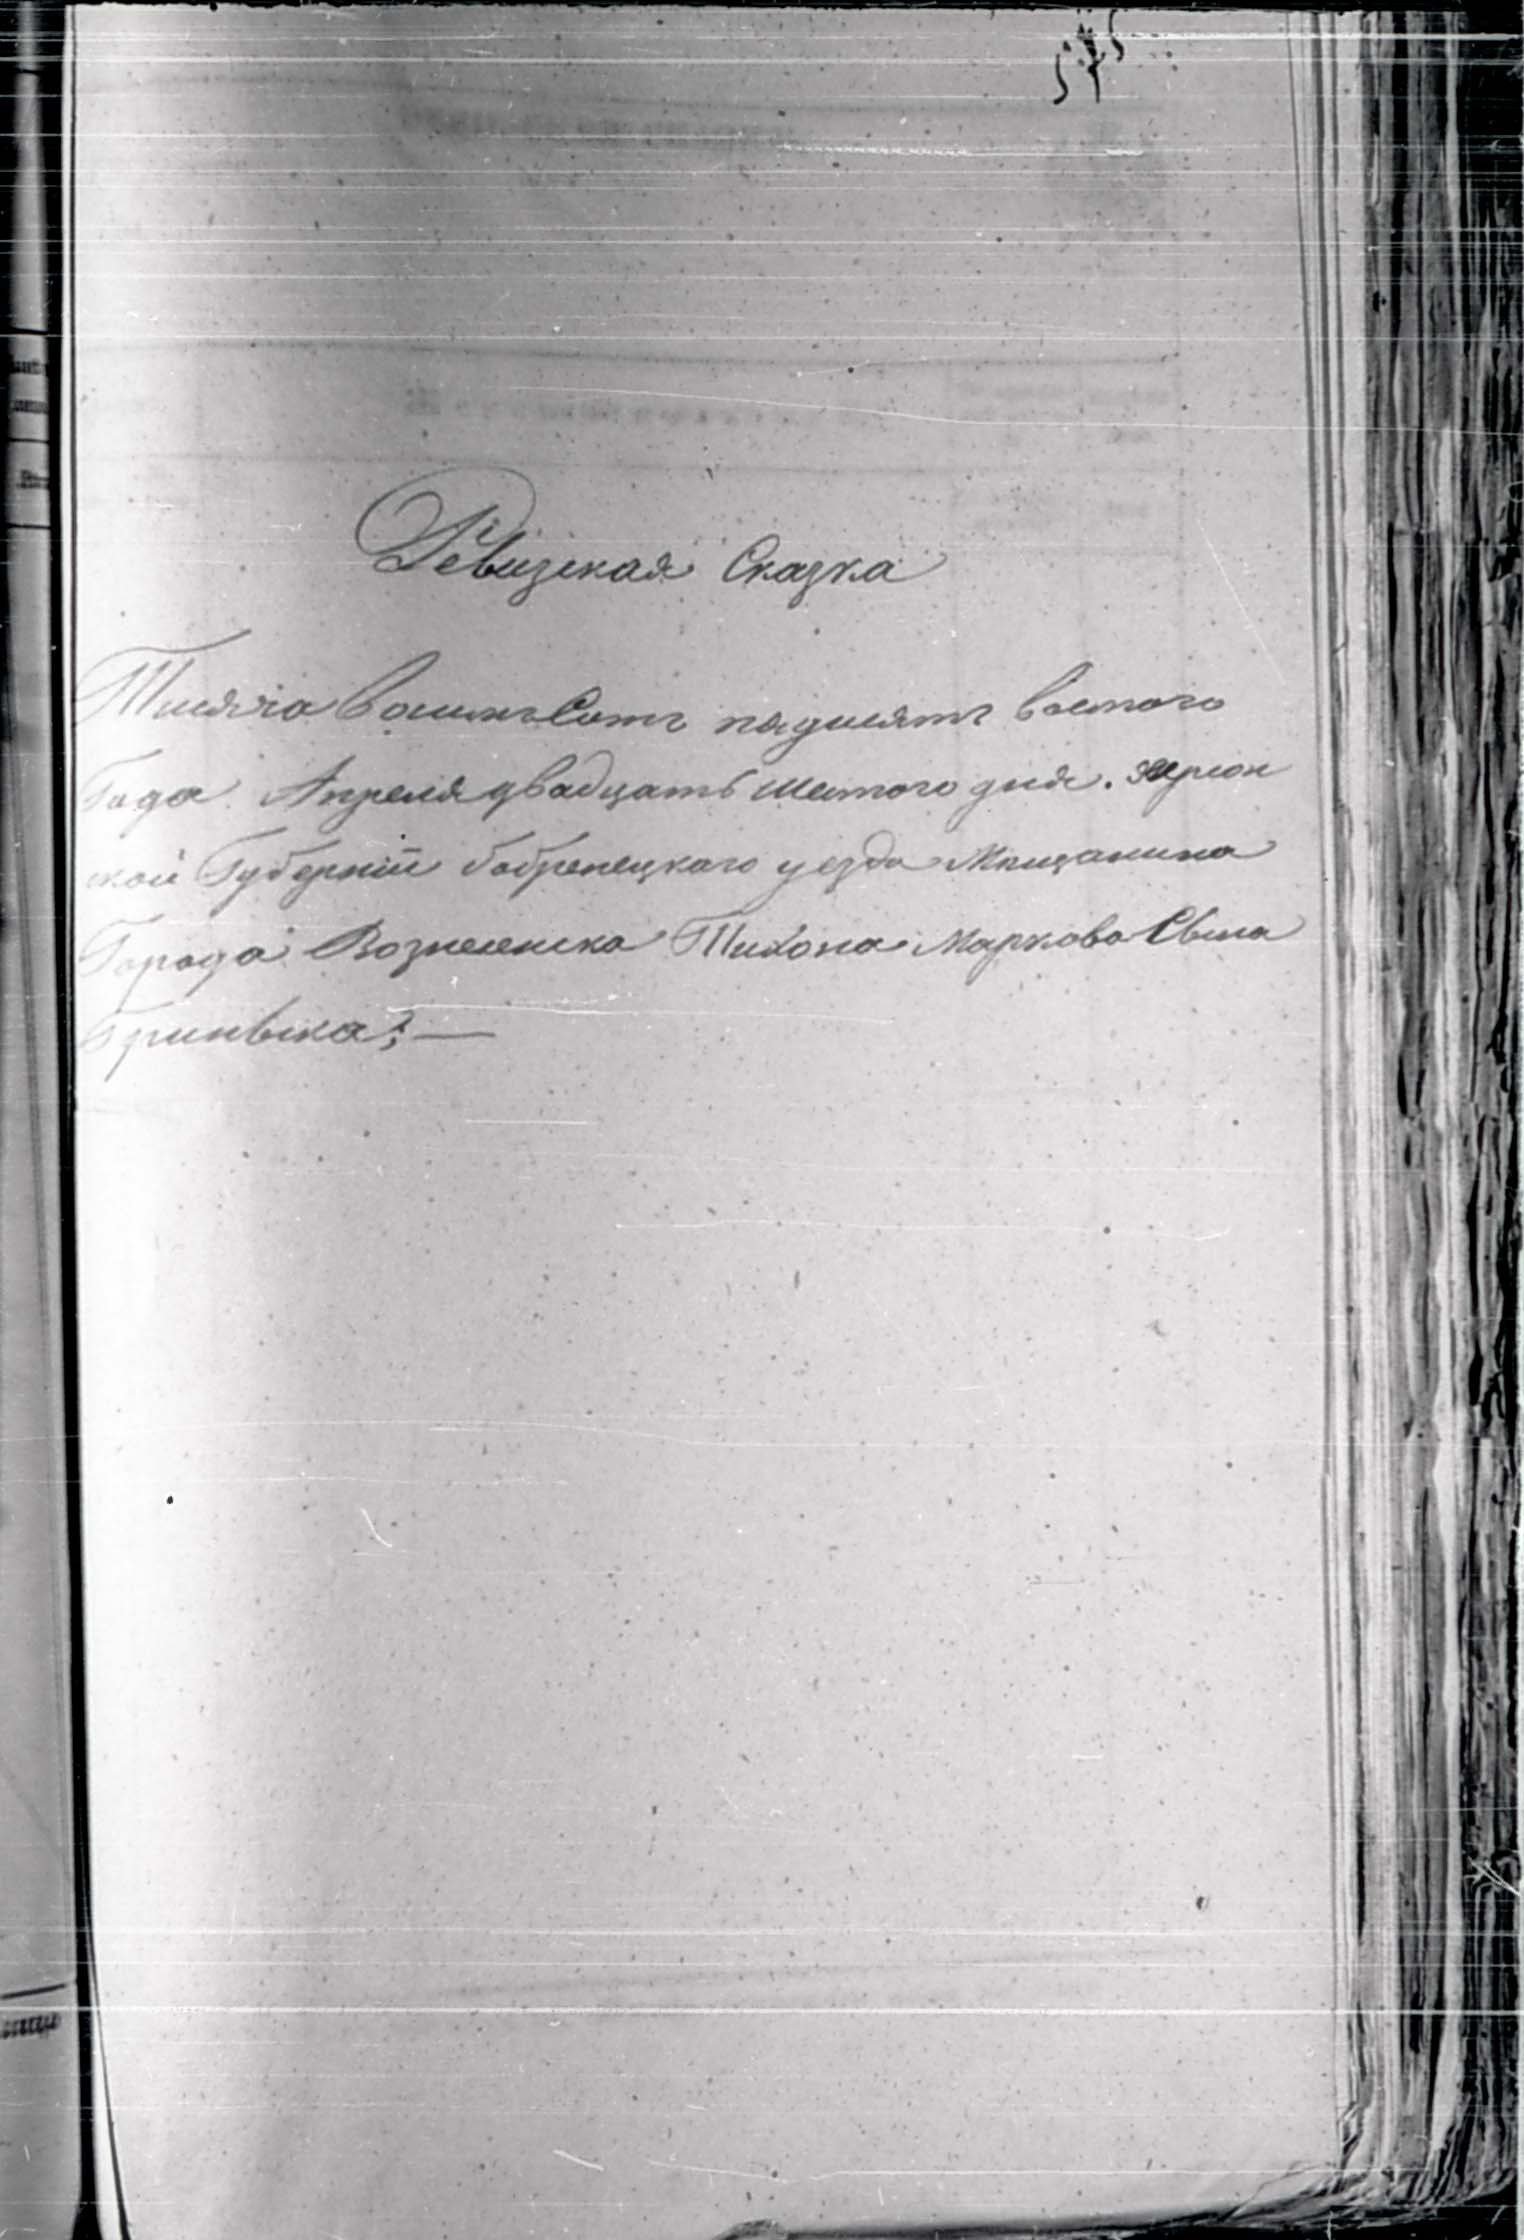 575
Ревизская Сказка
Тисяча восимъ Сотъ пядисятъ восмого
Года Апреля двадцать шестого дня. Херсон
ской Губерніи бобренецкаго уезда Мищанина
Города Вознесенска Тихона Маркова Сына
Гриневска;—